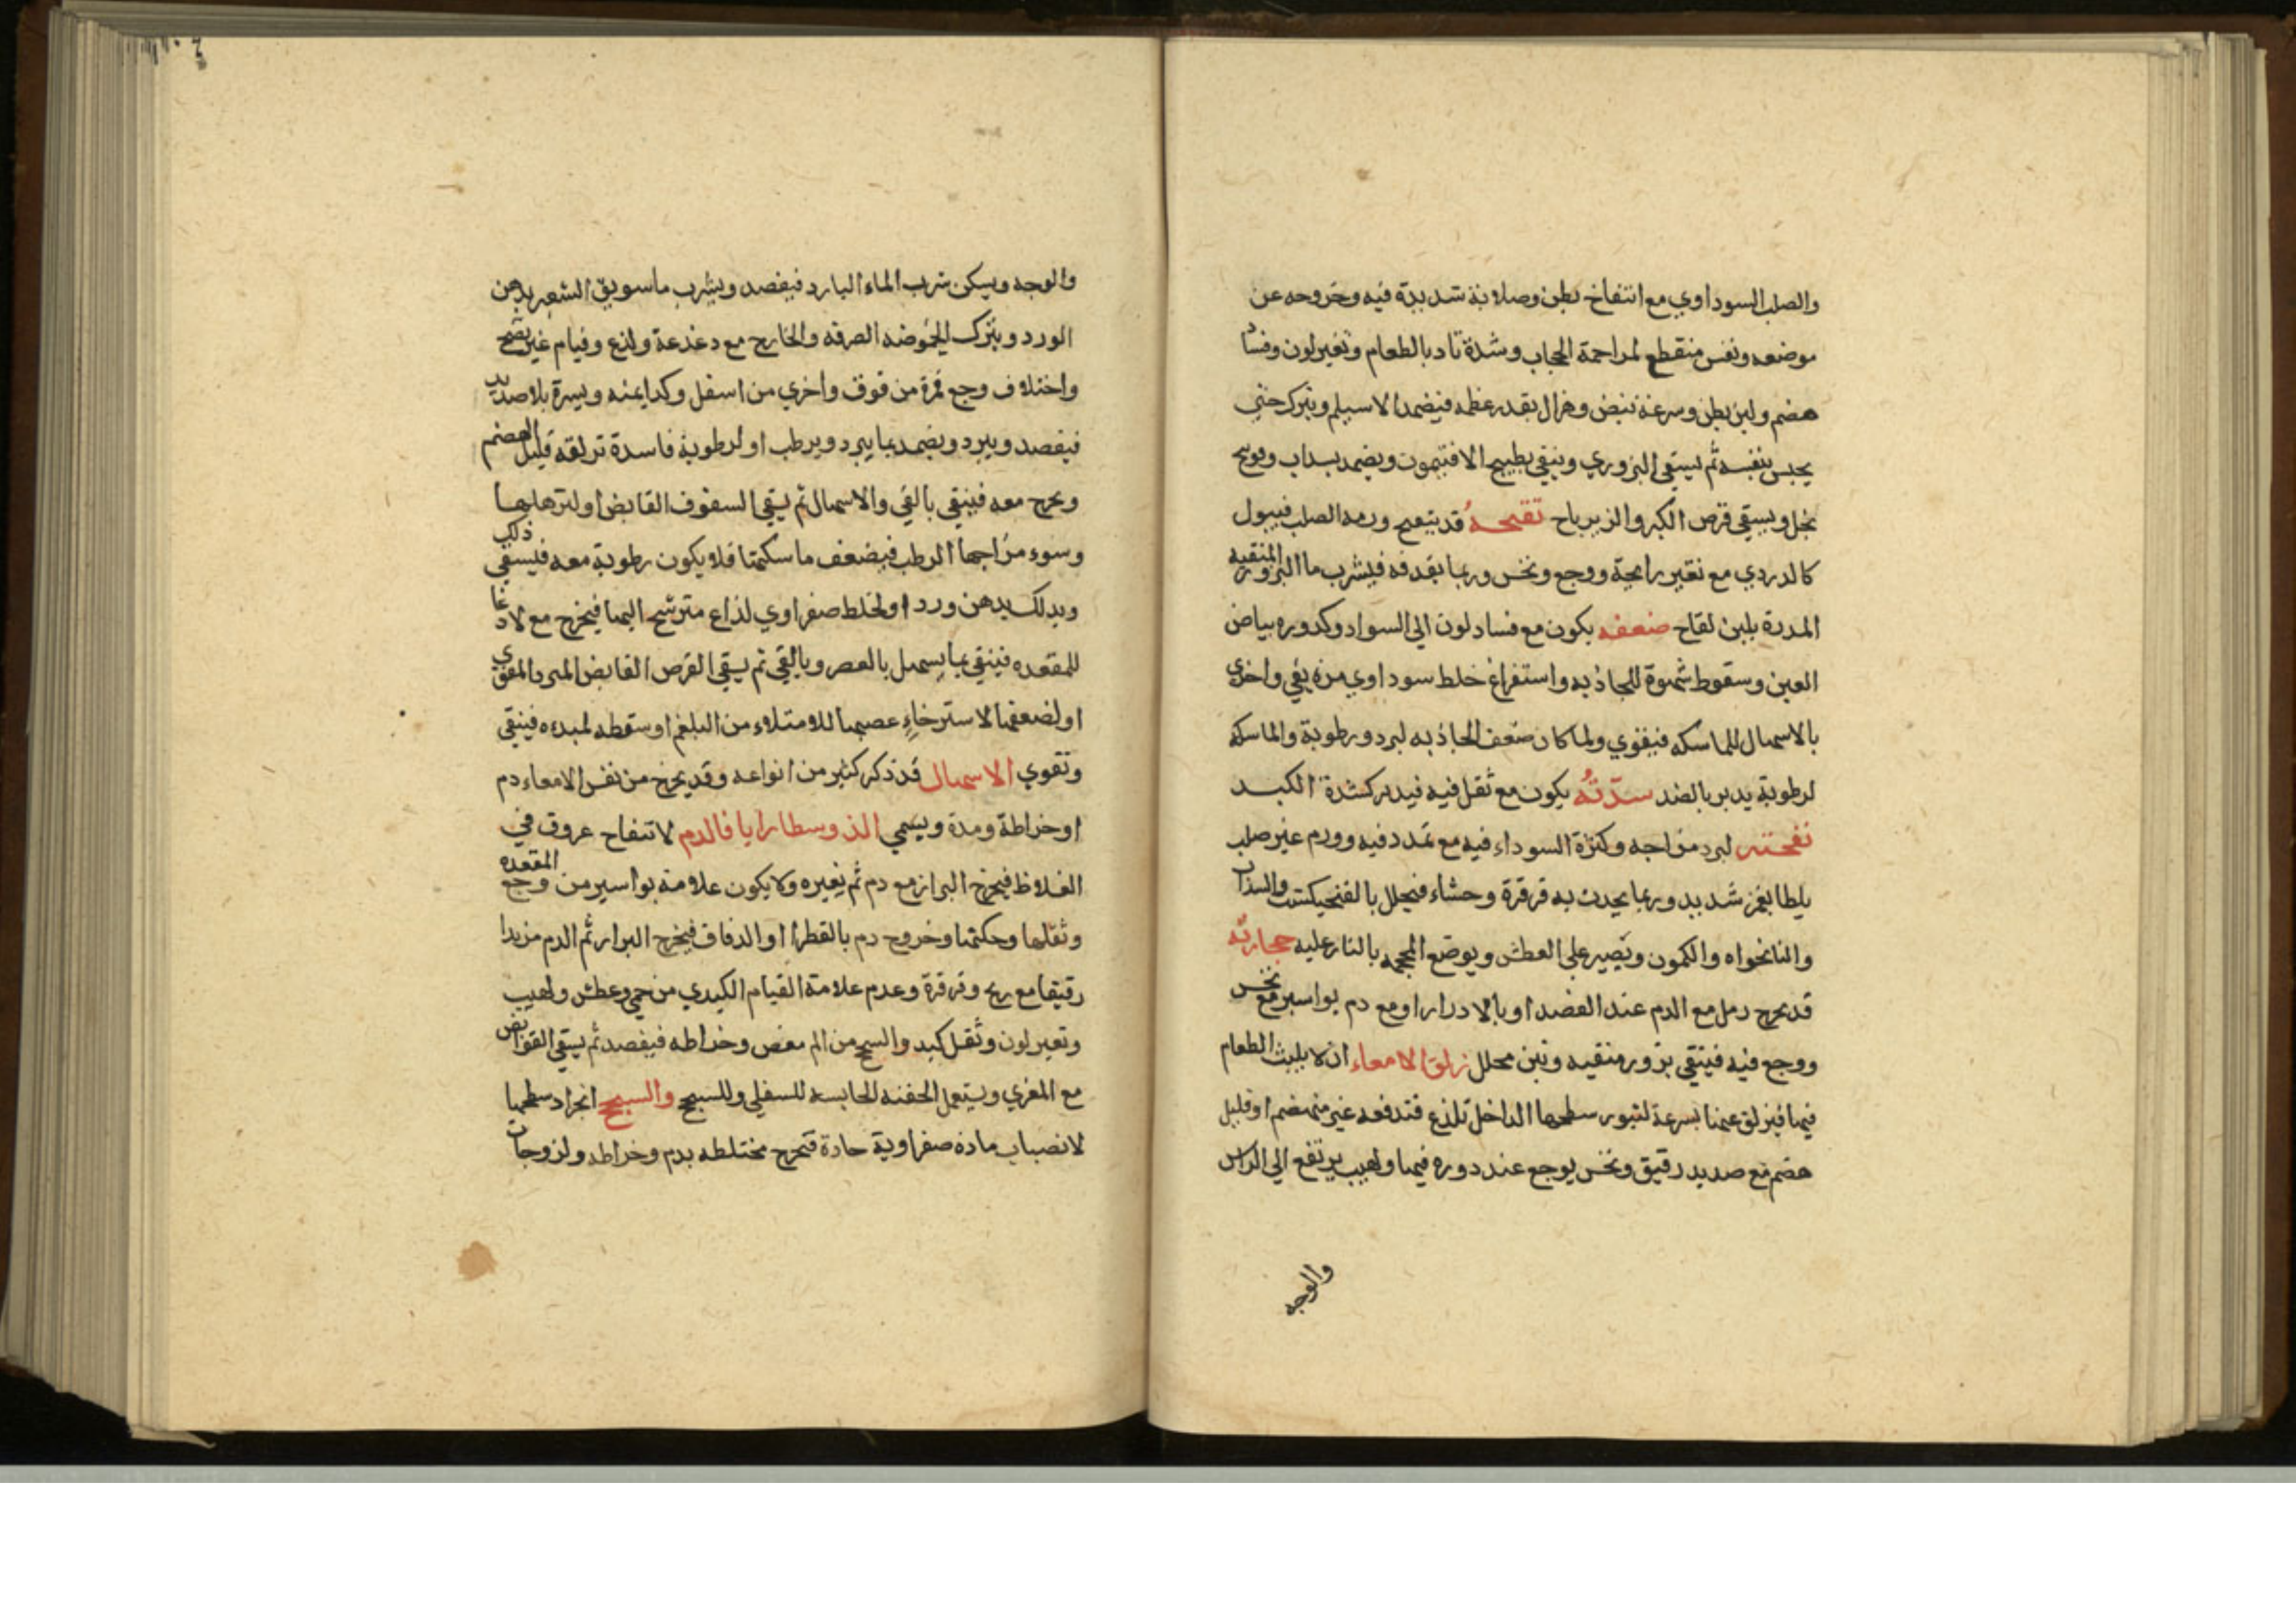 والصلب السوداوي مع انتفاخ بطن وصلابة شديدة فيه وخروجه عن
موضعه ونفس منقطع لمزاحمة الحجاب وشدة تاد بالطعام وتغير لون وفساد
هضم ولين بطن وسرعة نبض وهزال بقدر عظمه فيضمد الاسيلم ويترك حتي
يحبس بنفسه ثم يسقي البزوري وينقي بطبيخ الافتيمون ويضمد بسداب
بخل ويسقي قرص الكبر والزيرباح تقيحه قد يتقيح ورمه الصلب فيبول
كالدردي مع تغير رايحة ووجع ونخس وربما يقذفه فيشرب ما البزور المنقيه
المدرة بلبن لقاح ضعفه يكون مع فساد لون الي السواد وكدوره بياض
العين وسقوط شهوة للجاذبه واستفراغ خلط سوداوي مرة بقي واخري
بالاسهال للماسكه فيقوي ولما كان ضعف الجاذبه لبرد ورطوبة والماسكه
لرطوبة يدبر بالضد سدته يكون مع ثقل فيه فيدبر كشدة الكبد
نفخته لبرد مزاجه وكثرة السوداء فيه مع تمدد فيه وورم غير صلب
يلطا بغمز شديد وربما يحدث به قرقرة وجشاء فيحلل بالفنجيكشت والسداب
والنانخواه والكمون ويصبر علي العطش ويوضع المحجمه بالنار عليه حجارته
قد يخرج رمل مع الدم عند الفصد او بالادرار او مع دم بواسير مع نخس
ووجع فيه فينقي بزور منقيه وتين محلل زلق الامعاء ان لا يلبث الطعام
فيها فيزلق عنها بسرعة لثبور سطحها الداخل تلذع فتدفعه غير منهضم او قليل
هضم مع صديد رقيق ونخس يوجع عند دوره فيها ولهيب يرتفع الي الراس
والوجه
والوجه ويسكن شرب الماء البارد فيفصد ويشرب ما سويق الشعير بدهن
الورد ويترك الحموضه الصرفه والخارج مع دغدغة ولذع وقيام غير نضج
واختلاف وجع فمرة من فوق واخري من اسفل وكذا يمنه ويسرة بلا صديد
فيفصد ويبرد ويضمد بما يبرد ويرطب او لرطوبة فاسدة تزلقه قليل الهضم
ويخرج معه فينقي بالقي والاسهال ثم يسقي السفوف القابض او لترهلها
وسوء مزاجها الرطب فيضعف ماسكتها فلا يكون رطوبة معه فيسقي ذلك
ويدلك بدهن ورد او لخلط صفراوي لذاع مترشح اليها فيخرج مع لادغا
للمقعده فينقي بما يسهل بالعصر وبالقي ثم يسقي القرص القابض المبرد المقوي
او لضعفها لاسترخاء عصبها للامتلاء من البلغم او سقطه لمبدءه فينقي
وتقوي الاسهال قد ذكر كثير من انواعه وقد يخرج من نفس الامعاء دم
او خراطة ومدة ويسمي الذوسطارايا فالدم لانتفاح عروق في
الغلاظ فيخرج البراز مع دم ثم بغيره ولا يكون علامة بواسير من وجع المقعده
وثقلها وحكتها وخروج دم بالقطر او الدفاق فيخرج البراز ثم الدم مزبدا
رقيقا مع ريح وقرقرة وعدم علامة القيام الكبدي من حمي وعطش ولهيب
وتغير لون وثقل كبد والسحج من الم مغص وخراطه فيفصد ثم يسقي القوابض
مع المغري ويستعمل الحقنه الحابسه للسفلي وللسحج والسحج انجراد سطحها
لانصباب مادة صفراوية حادة فتخرج مختلطه بدم وخراطه ولزوجات